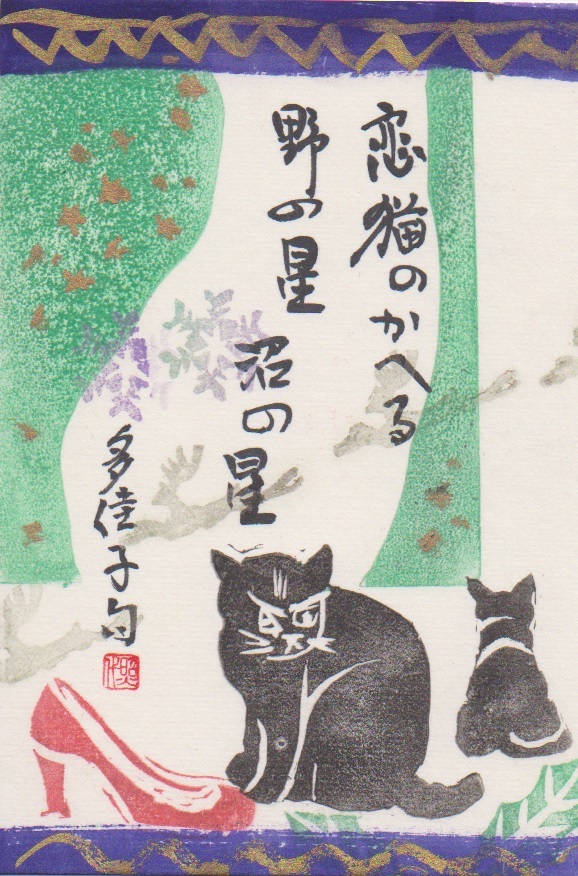 恋猫のかへる
野の星 沼の星
多佳子句